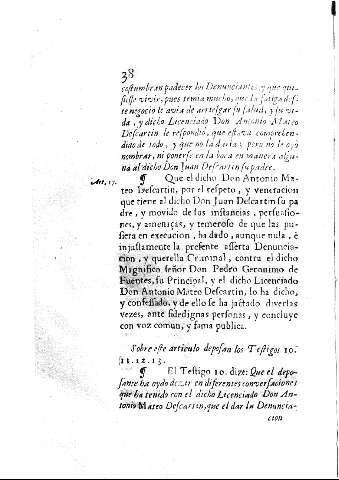 38
costumbran padecer los Denunciantes, y que qui-
siesse vivir, pues temia mucho, que la fatiga deste
negocio le avia de arriesgar su salud, y su vi-
da, y dicho Licenciado Don Antonio Mateo
Descartin le respondiò, que estava comprehen-
dido de todo, y que no la daria; pero no le oyò
nombrar, ni ponerse en la boca en manera algu-
na al dicho Don Juan Descartin su padre.
Art. 17. ¶ Que el dicho Don Antonio Ma-
teo Descartin, por el respeto, y veneracion
que tiene al dicho Don Juan Descartin su pa-
dre, y movido de sus instancias, persuasio-
nes, y amenaças, y temeroso de que las pu-
siera en execucion, ha dado, aunque nula, è
injustamente la presente asserta Denuncia-
cion, y querella Criminal, contra el dicho
Magnifico señor Don Pedro Geronimo de
Fuentes, su Principal, y el dicho Licenciado
Don Antonio Mateo Descartin, lo ha dicho,
y confessado, y de ello se ha jactado diversas
vezes, ante fidedignas personas, y concluye
con voz comun, y fama publica.
Sobre este articulo deposan los Testigos 10.
11.12.13.
¶ El Testigo 10. dize: Que el depo-
sante ha oydo dezir en diferentes conversaciones
que ha tenido con el dicho Licenciado Don An-
tonio Mateo Descartin, que el dar la Denuncia-
cion